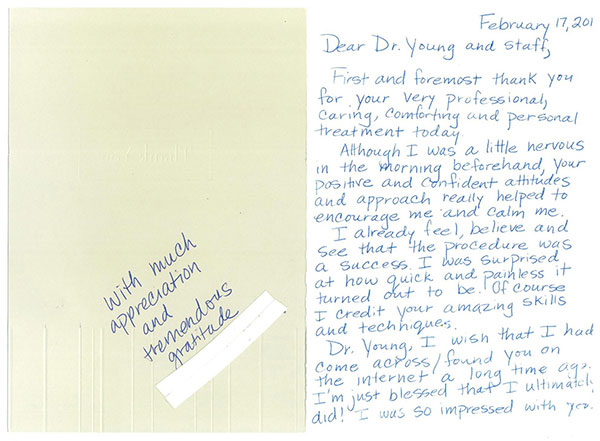 With much
appreciation
and
tremendous
gratitude
February 17, 201
Dear Dr. Young and staff,
First and foremost thank you
for your very professional,
caring, comforting and personal
treatment today.
Although I was a little nervous
in the morning beforehand, your
positive and confident attitudes
and approach really helped to
encourage me and calm me.
I already feel, believe and
see that the procedure was
a success. I was surprised
at how quick and painless it
turned out to be. Of course
I credit your amazing skills
and techniques.
Dr. Young, I wish that I had
come across/found you on
the internet a long time ago.
I'm just blessed that I ultimately
did! I was so impressed with you.